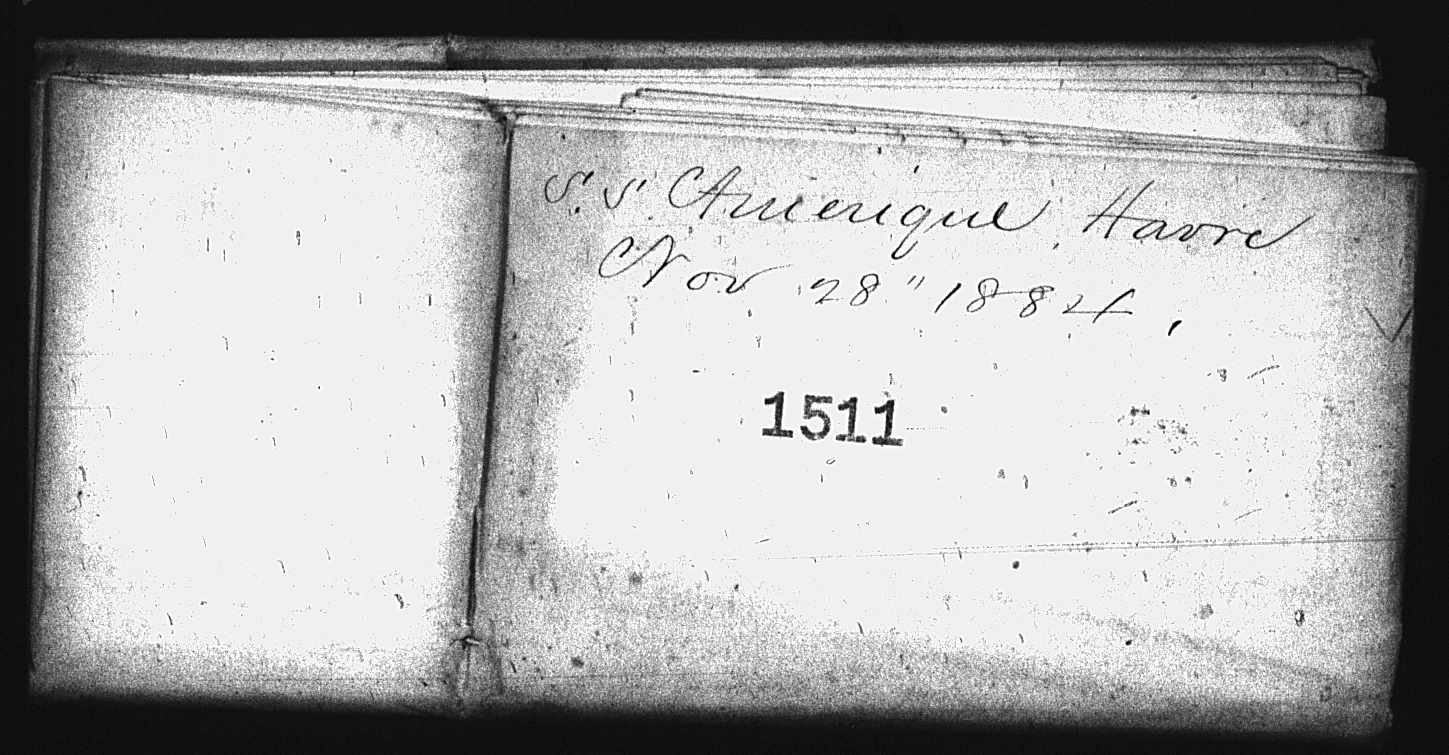 S.S. Amerique, Havre
Nov 28" 1884,
1511